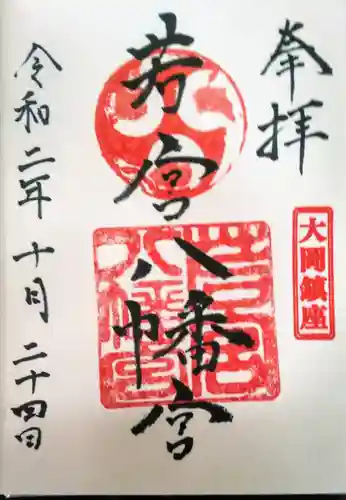 奉拝
大開鎮座
若宮八幡宮
令和二年十月二十四日